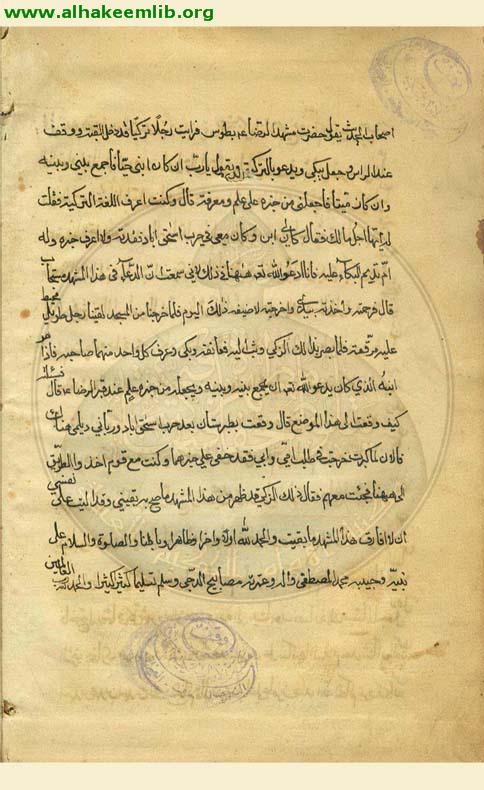 www.alhakeemlib.org
اصحاب الحديث يقول حضرت مشهد الرضا ع بطوس فرايت رجلا تركيا قد دخل القبة ووقف
عند الراس وجعل يبكي ويدعو بالتركية ويقول يا رب ان كان ابني حيا فاجمع بيني وبينه
وان كان ميتا فاجعلني من خبره على علم ومعرفة قال وكنت اعرف اللغة التركية فقلت
له ايها الرجل مالك فقال كان لي ابن وكان معي في حرب اسحق اباد ففقدته ولا اعرف خبره وله
ام تديم البكاء عليه فانا ادعو الله تعا ههنا في ذلك لاني سمعت ان الدعاء في هذا المشهد مستجاب
قال فرحمته واخذته بيده واخرجته لاضيفه ذلك اليوم فلما خرجنا من المسجد لقينا رجل طويل مختط
عليه مرقعة فلما بصر بذلك التركي وثب اليه فعانقه وبكى وعرف كل واحد منهما صاحبه فاذا هو
ابنه الذي كان يدعو الله تعا ان يجمع بينه وبينه ويجعله من خبره على علم عند قبر الرضا ع قال فسالته
كيف وقعت الى هذا الموضع قال وقعت بطبرستان بعد حرب اسحق اباد ورباني ديلمي هناك
فالان لما كبرت خرجت في طلب ابي وامي فقد خفي علي خبرهما وكنت مع قوم اخذوا الطريق
الى ههنا فجئت معهم فقال ذلك التركي قد ظهر من هذا المشهد ما صح به يقيني وقد اليت على نفسي
ان لا افارق هذا المشهد ما بقيت والحمد لله اولا واخرا وظاهرا وباطنا والصلوة والسلام على
نبيه وحبيبه محمد المصطفى واله وعترته مصابيح الدجى وسلم تسليما كثيرا كثيرا والحمد لله رب العالمين